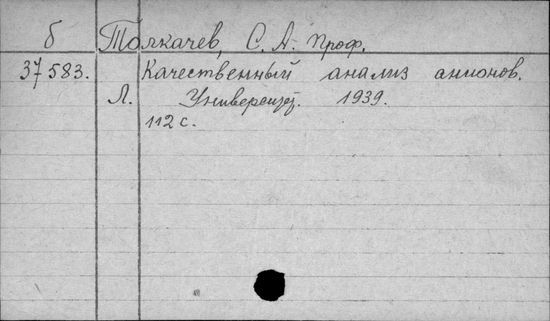 б Толкачев, С. А. проф.
37583. Качественный анализ анионов.
Л. Университ. 1939.
112 с.